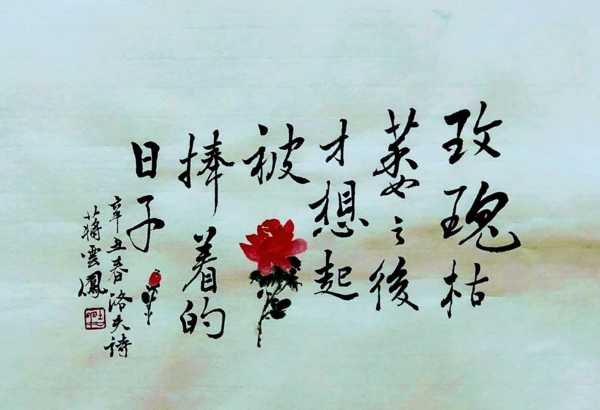 玫瑰枯
萎之後
才想起
被
捧着的
日子
辛丑春洛夫詩
蔣雲鳳